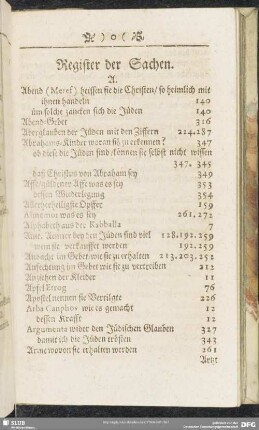 ) o (
Register der Sachen.
A.
Abend (Maref) heissen sie die Christen / so heimlich mit
ihnen handeln 140
üm solche zancken sich die Jüden 140
Abend-Gebet 316
Aberglauben der Jüden mit den Ziffern 214.287
Abrahams-Kinder woran sie zu erkennen? 347
ob diese die Jüden sind / können sie selbst nicht wissen
347. 349
daß Christus von Abraham sey 349
Affe was es sey 353
dessen Wiederlegung 354
Allerheiligste Opffer 159
was es sey 261,272
Alphabeth aus der Kabbala 7
Amt. Aemter bey den Jüden sind viel 128.192.259
man sie verkauffet werden 192.259
Andacht im Gebet wie sie zu erhalten 213.203.251
Anfechtung im Gebet wie sie zu vertreiben 212
Anziehen der Kleider 11
Apfel Esrog 76
Apostel nennen sie Vertilgte 226
Arba Canphos wie es gemacht 12
dessen Krafft 12
Argumenta wider den Jüdischen Glauben 327
damit ich die Jüden 343
Arme wovon sie erhalten werden 261
Artzt
SLUB
DFG